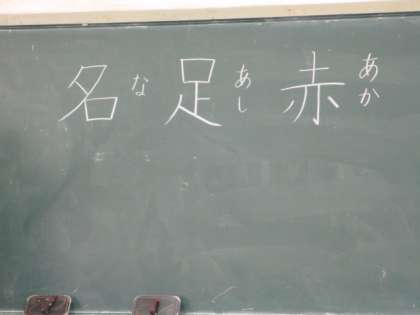 名 な 足 あし 赤 あか